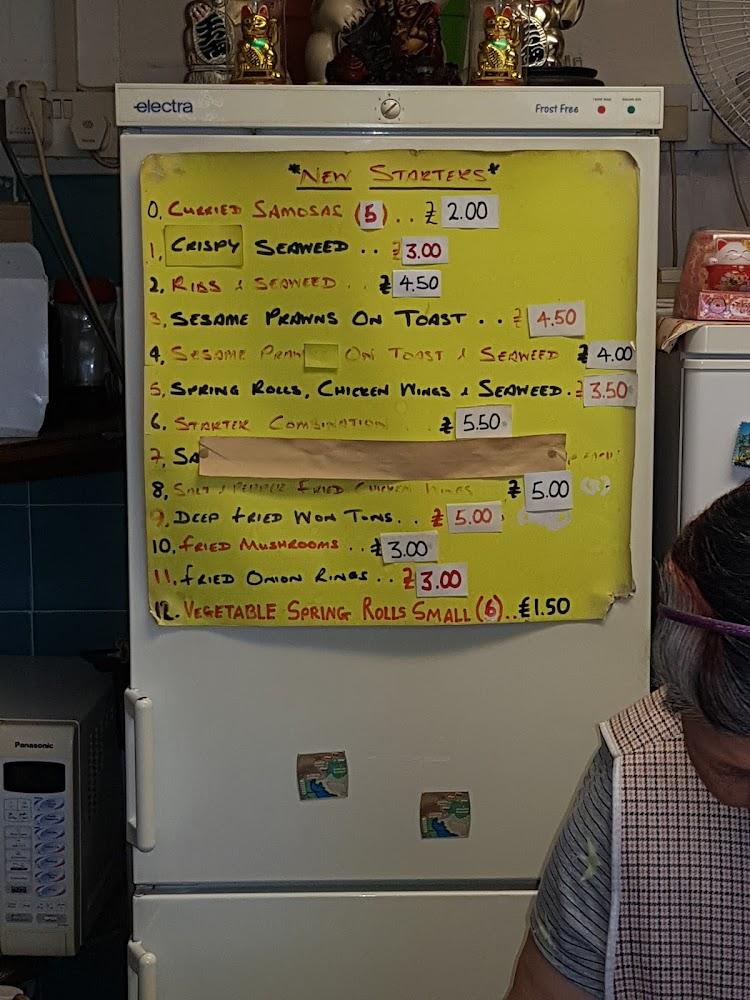 electra
Frost Free
*NEW STARTERS*
0. CURRIED SAMOSAS (5) .. £ 2.00
1. CRISPY SEAWEED .. £ 3.00
2. RIBS & SEAWEED .. £ 4.50
3. SESAME PRAWNS ON TOAST .. £ 4.50
4. SESAME PRAWN ON TOAST & SEAWEED £ 4.00
5. SPRING ROLLS, CHICKEN WINGS & SEAWEED. £ 3.50
6. STARTER COMBINATION £ 5.50
7. SA
8. SALT & PEPPER FRIED CHICKEN WINGS £ 5.00
9. DEEP FRIED WON TONS.. £ 5.00
10. FRIED MUSHROOMS .. £ 3.00
11. FRIED ONION RINGS .. £ 3.00
12. VEGETABLE SPRING ROLLS SMALL (6)..£1.50
Panasonic